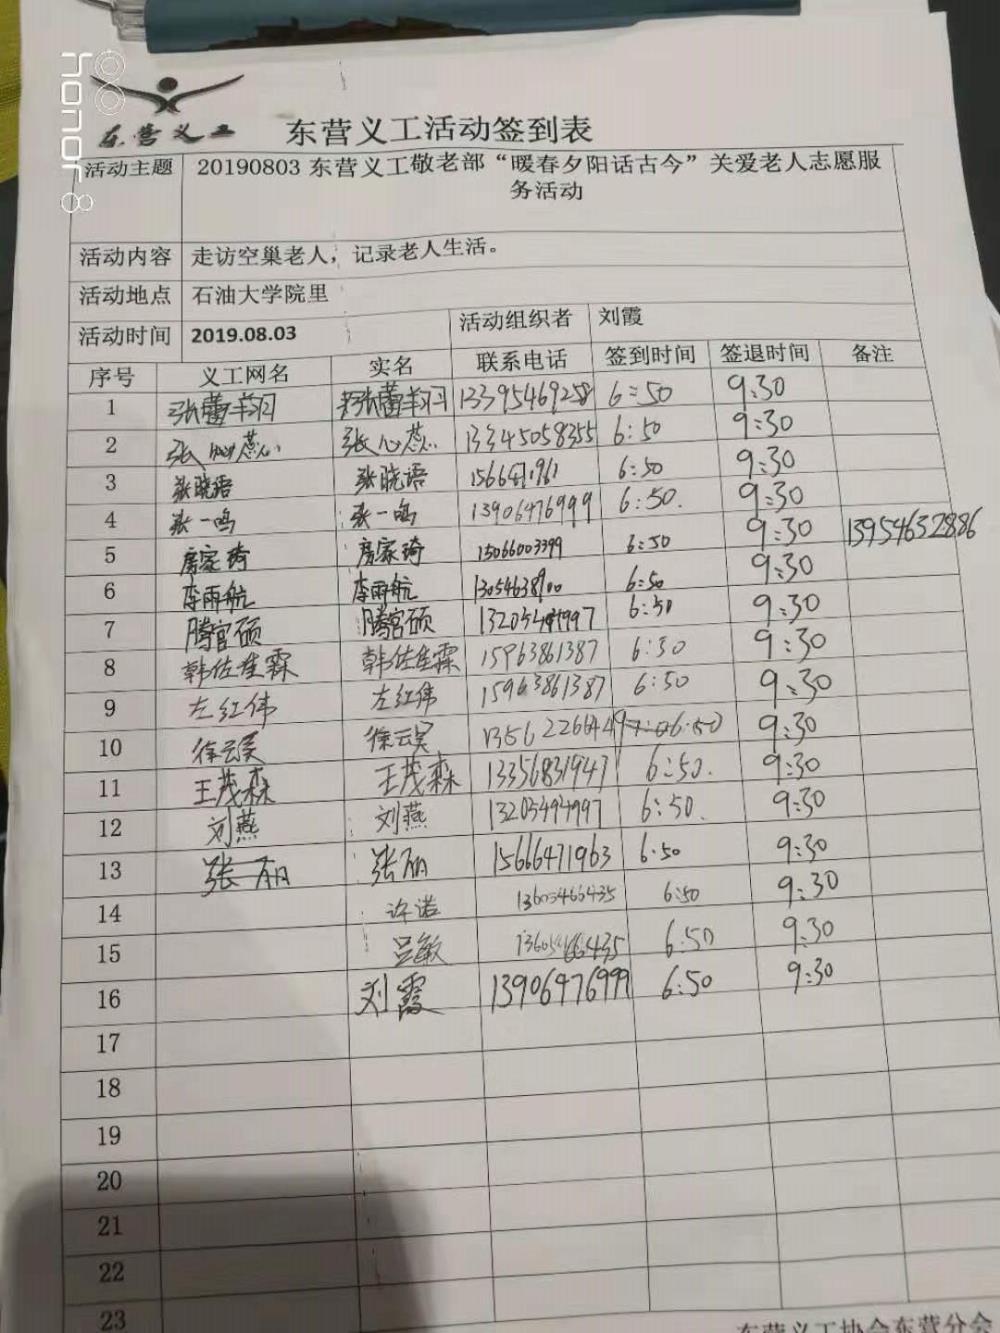 honor 8
东营义工
东营义工活动签到表
活动主题 20190803 东营义工敬老部“暖春夕阳话古今”关爱老人志愿服
务活动
活动内容 走访空巢老人，记录老人生活。
活动地点 石油大学院里
活动时间 2019.08.03 活动组织者 刘霞
序号 义工网名 实名 联系电话 签到时间 签退时间 备注
1 张蕾羊羽 张蕾羊羽 13395469258 6:50 9:30
2 张心蕊 张心蕊 13345058355 6:50 9:30
3 张晓语 张晓语 6:50 9:30
4 张一鸣 张一鸣 13906476999 6:50. 9:30
5 房家琦 房家琦 15066003399 6:50 9:30 13954632886
6 李雨航 李雨航 6:50 9:30
7 腾官硕 腾官硕 6:50 9:30
8 韩佐佳霖 韩佐佳霖 15963861387 6:50 9:30
9 左红伟 左红伟 15963861387 6:50 9:30
10 徐云昊 徐云昊 6:50 9:30
11 王茂森 王茂森 13356831947 6:50. 9:30
12 刘燕 刘燕 13205494997 6:50. 9:30
13 张丽 张丽 15666471963 6:50 9:30
14 许诺 13605466435 6:50 9:30
15 吕敏 13605466435 6:50 9:30
16 刘霞 13906476999 6:50 9:30
17
18
19
20
21
22
23
东营义工协会东营分会